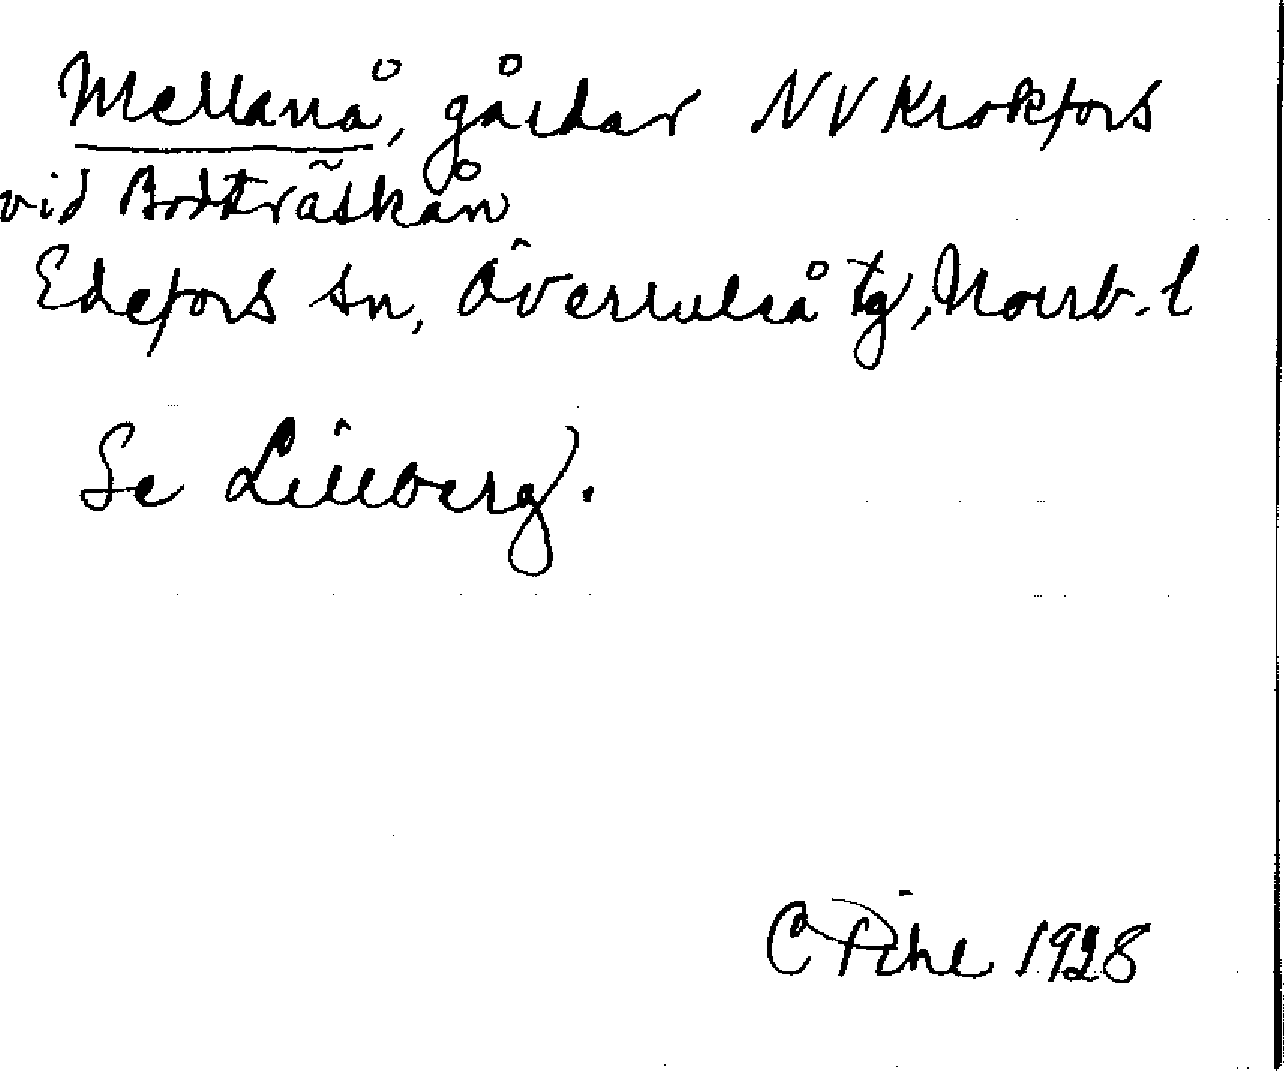 Mellanå, gårdar NV Krokfors
vid Bodträskån
Edefors sn, Överluleå tg, Norrb. l
Se Lillberg.
C Pihl 1928